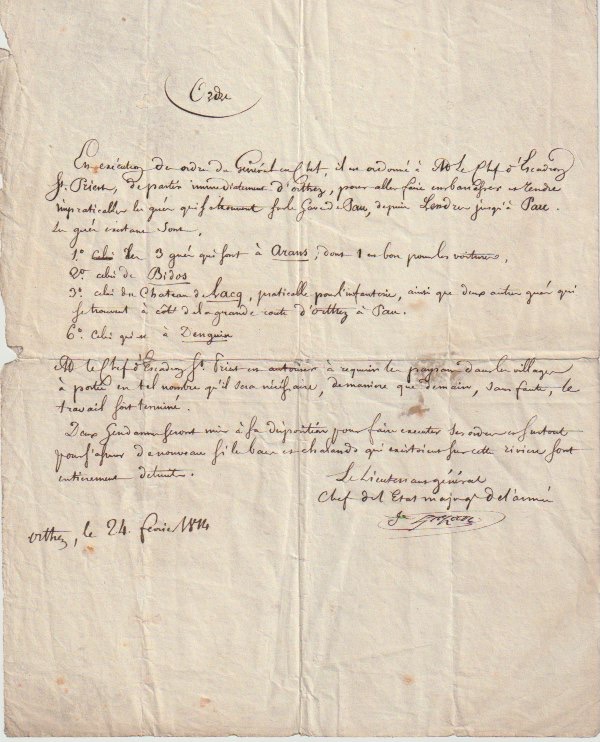 Ordre
En exécution de ordre du Général en Chef, il est ordonné à M Le Chef d'Escadron
St. Priest, de partir immédiatement d'orthez, pour aller faire embarrasser et rendre
impraticables les gués qui se trouvent sur le Gave de Pau, depuis Lendresse jusqu'à Pau.
Les gués existans sont,
1.° celui les 3 gués qui sont à Arans, dont 1 est bon pour les voitures,
2.° celui de Bidos
3.° celui du Chateau de Lacq, praticable pour l'infanterie, ainsi que deux autres gués qui
se trouvent à coté de la grande route d'orthez à Pau.
6.° Celui qui est à Denguin
M le Chef d'Escadron St. Priest est autorisé à requérir les paysans dans les villages
à portée en tel nombre qu'il sera nécessaire, de manière que demain, sans faute, le
travail soit terminé.
Deux Gendarmes seront mis à sa disposition pour faire executer ses ordres et surtout
pour s'assurer de nouveau si les bacs et chalands qui existoient sur cette rivière sont
entièrement détruits.
Le Lieutenant général
Chef de l'Etat major gal de l'armée
orthez, le 24. février 1814